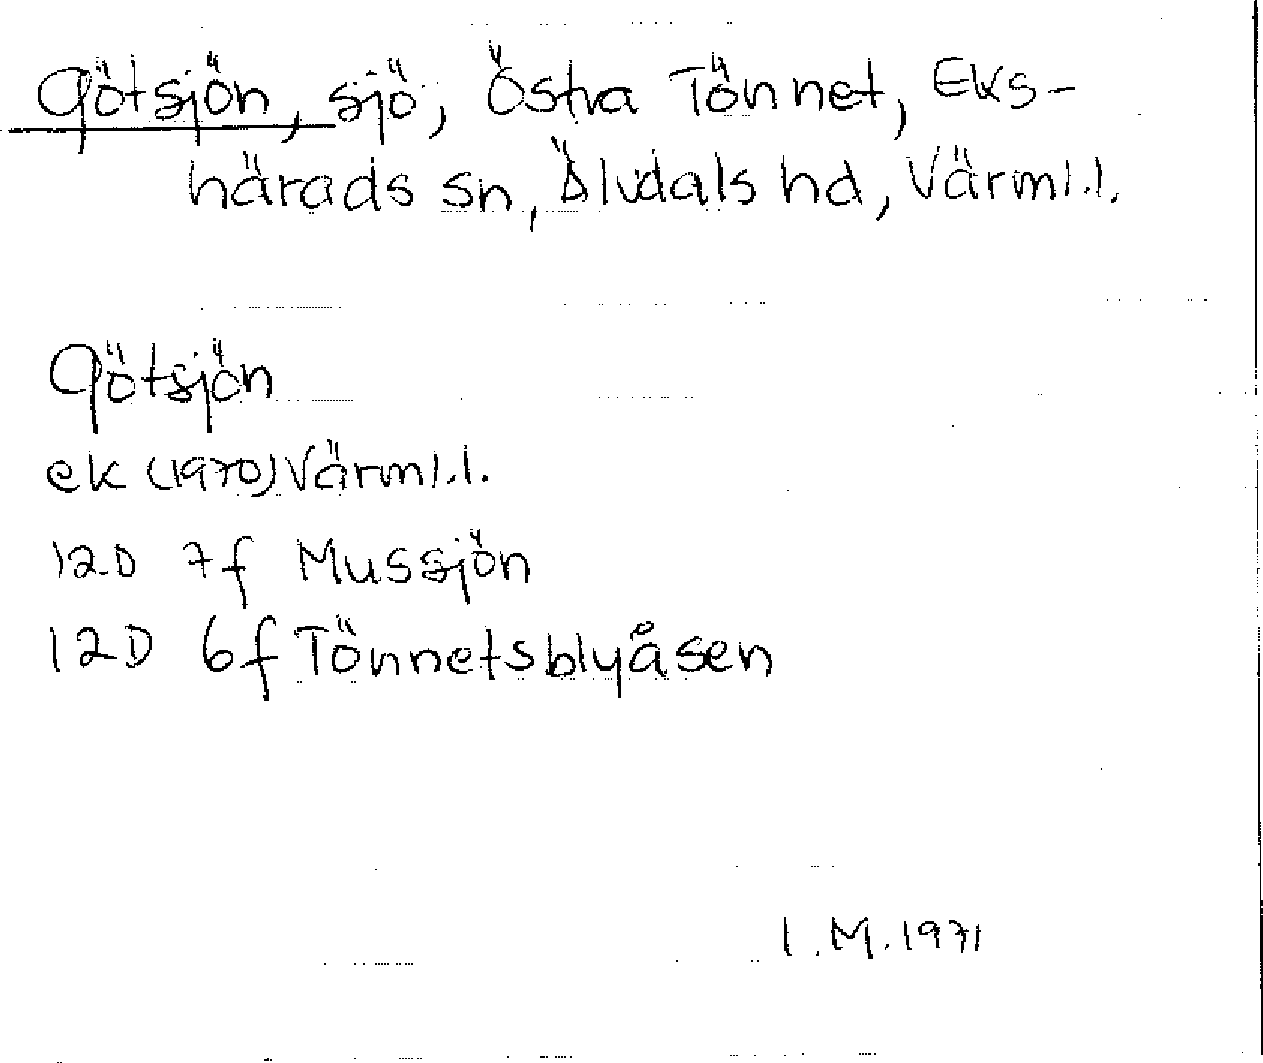 Götsjön, sjö, Östra Tönnet, Eks-
härads sn, Älvdals hd, Värml.l.
Götsjön
ek (1970) Värml.l.
12D 7f Mussjön
12D 6f Tönnetsblyåsen
I.M.1971